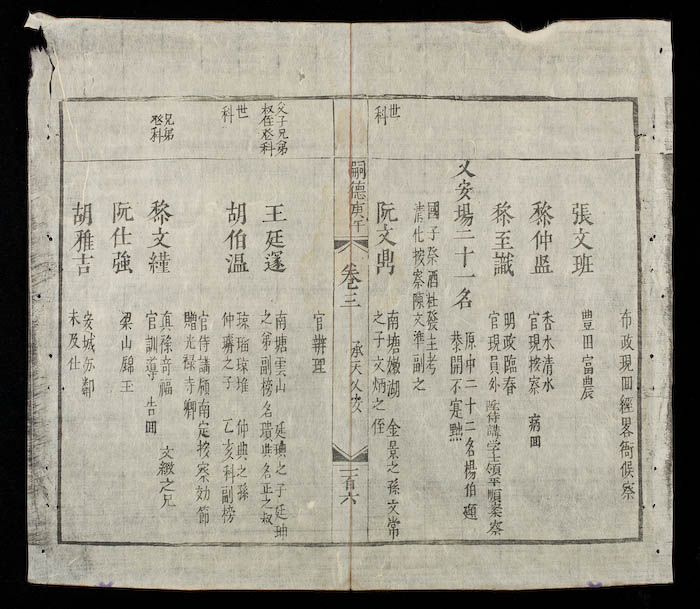 布政現回經畧衙候察
張文班
豊田富農
黎仲㽥
香水清水
官現按察 病回
黎至識
明政臨春
官現員外 陞侍講学士領平順案察
乂安場二十一名
原中二十二名楊伯
恭開不寔黜
國子祭酒杜發主考
清化按察陳文準副之
世科
阮文鼎
南塘嫩湖 金景之孫文常
之子文炳之侄
嗣德庚午
卷三
承天乂安
一百六
官辨理
父子兄弟
叔侄登科
王廷遂
南塘雲山 廷瓆之子廷珅
之弟副榜名瓆典名正之叔
世科
胡伯温
琼瑠琼堆 仲典之孫
仲璹之子 乙亥科副榜
官侍講領南定按察効節
贈光禄寺卿
兄弟
登科
黎文
真禄奇福
官訓導 告回 文緻之兄
阮仕強
梁山錦玉
胡雅吉
安城
未及仕